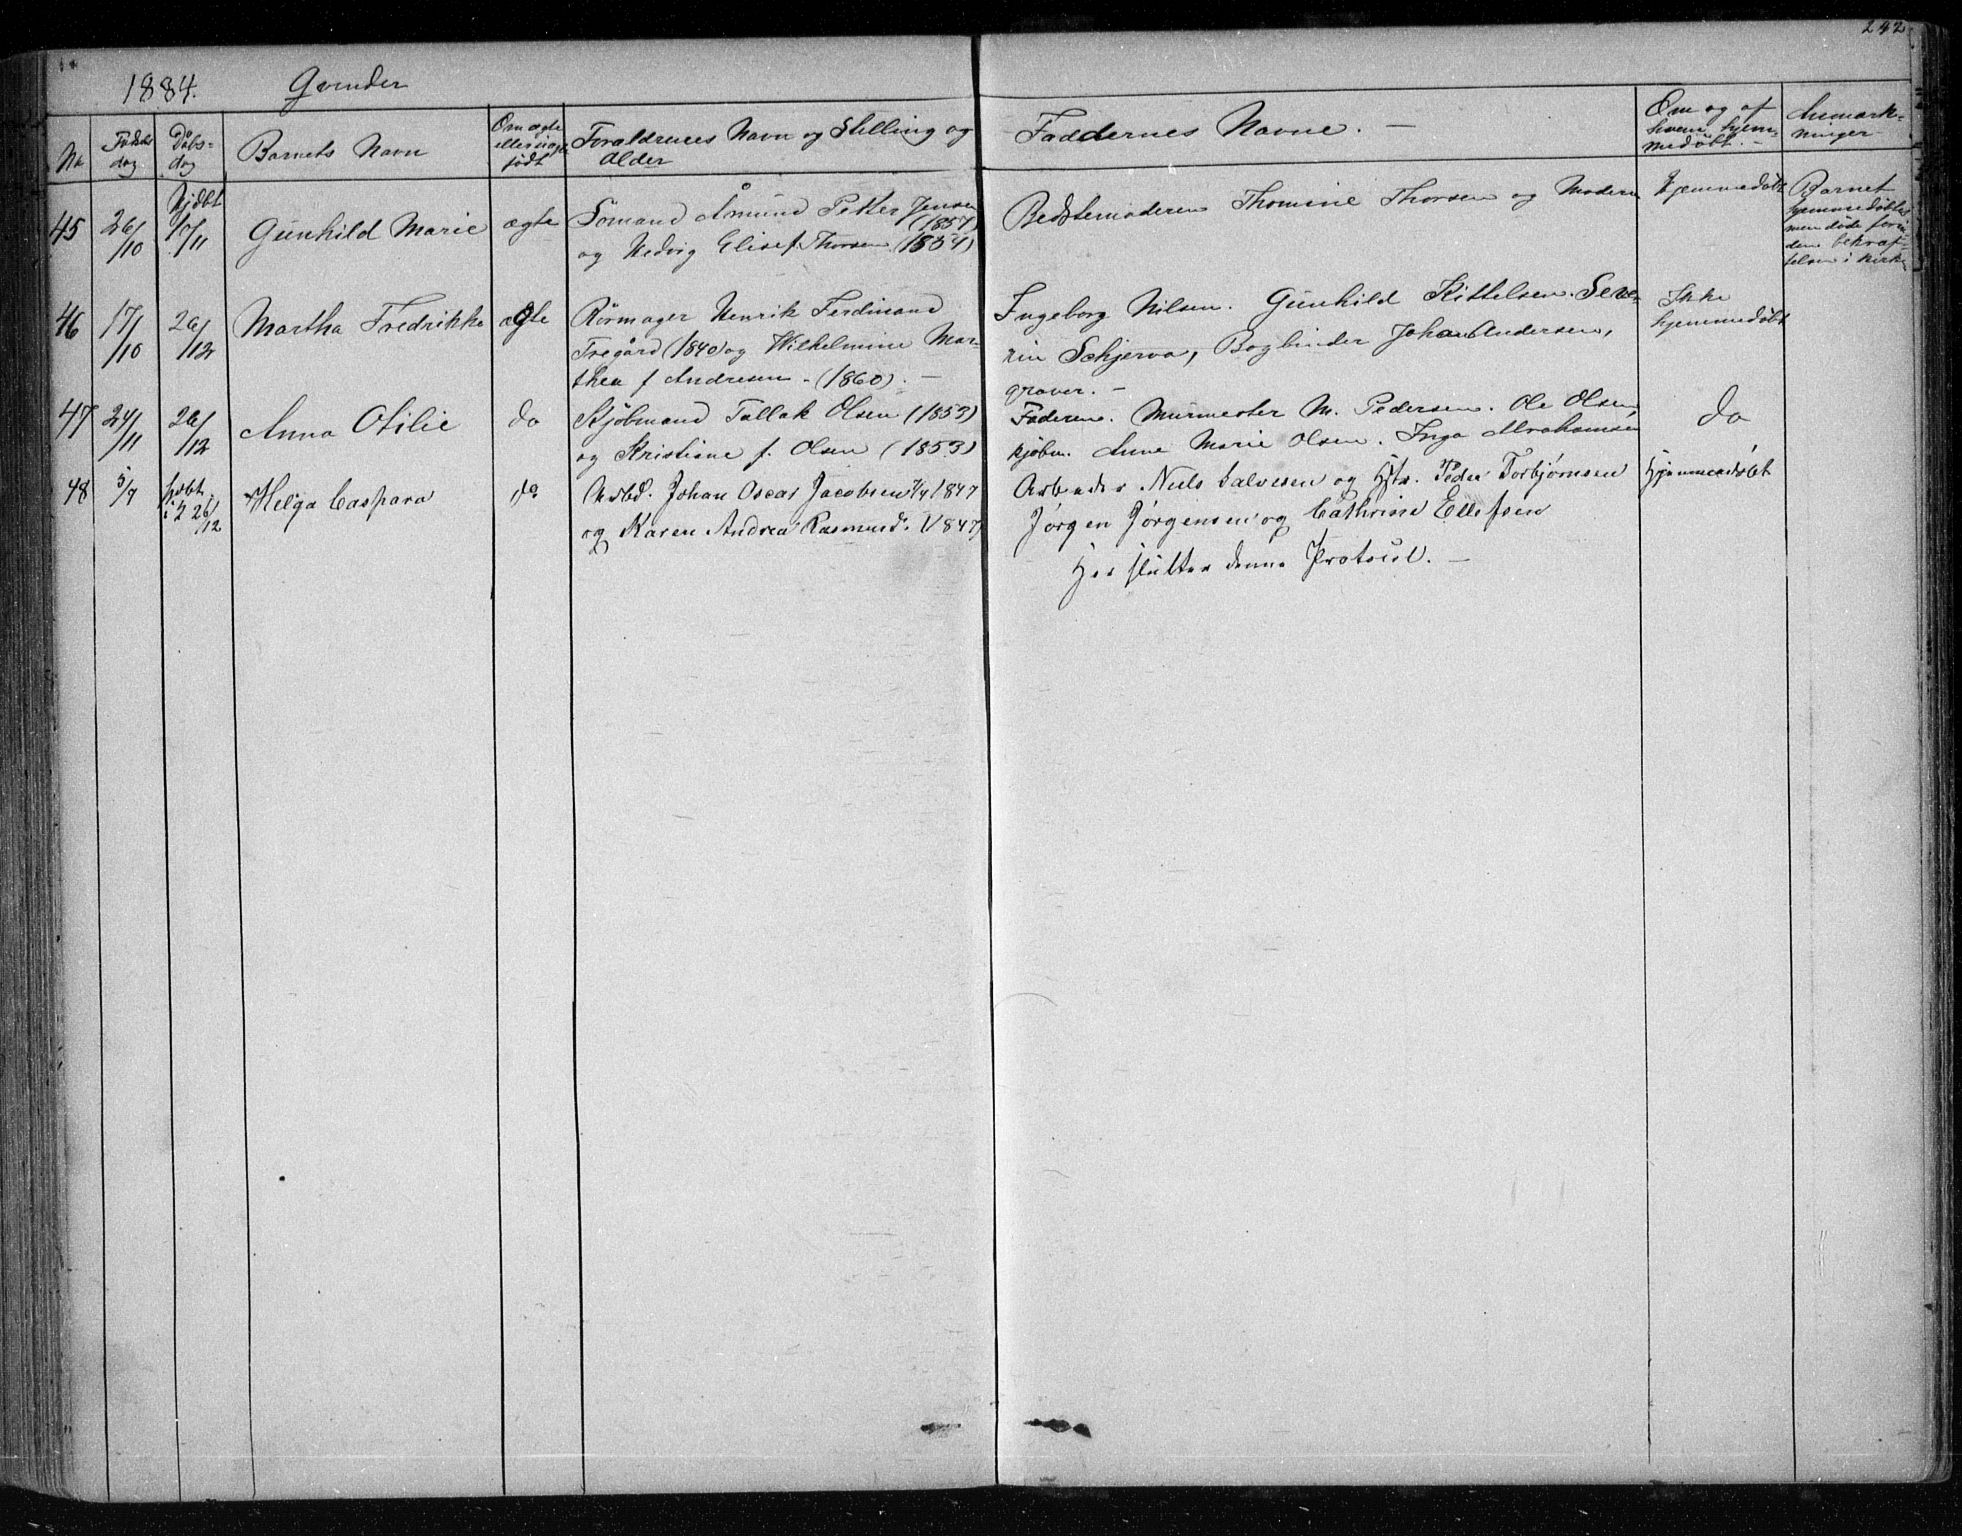 242
1884. Qvinder
No
Fødsels dag
Dåbs- dag
Barnets Navn
Om ægte eller uægte født
Forældrenes Navn og Stilling og Alder
Faddernes Navne. —
Om og af hvem hjem- medøbt. —
Anmærk- ninger
45 26/10 Hjdbt 10/11 Gunhild Marie ægte Sömand Åmund Petter Jensen (1857)
og Hedvig Elise f. Thorsen (1854)
Bedstemoderen Thomine Thorsen og Moderen
Hjemmedøbt
Barnet
hjemmedøbtes
men døde foren
den bekræf-
telsen i kirke
46 17/10 26/12 Martha Fredrikke ægte Rörmager Henrik Ferdinand
Tregård (1840) og Wilhelmine Mar-
thea f Andresen. (1860). —
Ingeborg Nilsen. Gunhild Kittelsen. Seve-
rin Schjerva, Bogbinder Johan Andersen,
graver. —
Ikke
hjemmedøbt
47 24/11 26/12 Anna Otilie do Kjøbmand Tallak Olsen (1853)
og Kristiane f. Olsen (1853)
Faderen. Murmester M. Pedersen. Ole Olsen,
kjøbm. Anne Marie Olsen. Inga Abrahamsen
do
48 5/7 26/12 Helga Caspara do Arbd. Johan Oscar Jacobsen 1847
og Karen Andrea Rasmusd. 1847
Arbeider Niels Salvesen og Hstr. Peder Torbjørnsen
Jørgen Jørgensen og Cathrine Ellefsen
Hjemmedøbt
Her slutter denne Protocol. —